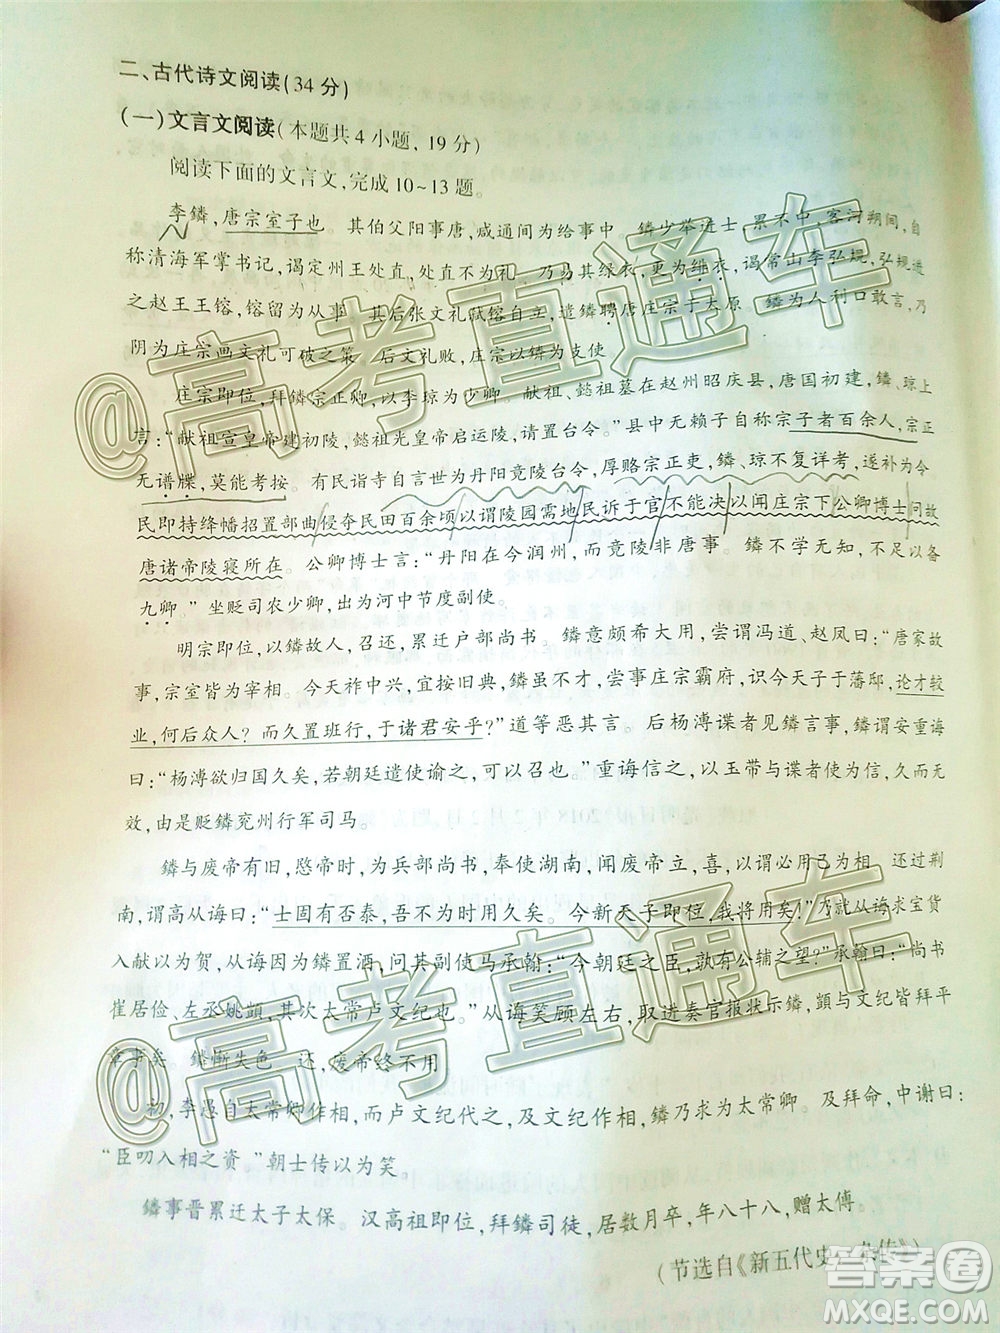 二、古代诗文阅读(34分)
(一)文言文阅读(本题共4小题,19分)
阅读下面的文言文,完成10~13题。
李鏻,唐宗室子也。其伯父阳事唐,咸通间为给事中。鏻少举进士,累不中,客河朔间,自
称清海军掌书记,谒定州王处直,处直不为礼。乃易其绿衣,更为绯衣,谒常山李弘规,弘规进
之赵王王镕,镕留为从事。其后张文礼弑镕自立,遣鏻聘唐庄宗于太原。鏻为人利口敢言,乃
阴为庄宗画文礼可破之策。后文礼败,庄宗以鏻为支使。
庄宗即位,拜鏻宗正卿,以李琼为少卿。献祖、懿祖墓在赵州昭庆县,唐国初建,鏻、琼上
言:“献祖宣皇帝建初陵,懿祖光皇帝启运陵,请置台令。”县中无赖子自称宗子者百余人,宗正
无谱牒,莫能考按。有民诣寺自言世为丹阳竟陵台令,厚赂宗正吏,鏻、琼不复详考,遂补为令
民即持绛幡招置部曲侵夺民田百余顷以谓陵园壖地民诉于官不能决以闻庄宗下公卿博士问故
唐诸帝陵寝所在。公卿博士言:“丹阳在今润州,而竟陵非唐事。鏻不学无知,不足以备
九卿。”坐贬司农少卿,出为河中节度副使。
明宗即位,以鏻故人,召还,累迁户部尚书。鏻意颇希大用,尝谓冯道、赵凤曰:“唐家故
事,宗室皆为宰相。今天祚中兴,宜按旧典,鏻虽不才,尝事庄宗霸府,识今天子于藩邸,论才较
业,何后众人?而久置班行,于诸君安乎?”道等恶其言。后杨溥谍者见鏻言事,鏻谓安重诲
曰:“杨溥欲归国久矣,若朝廷遣使谕之,可以召也。”重诲信之,以玉带与谍者使为信,久而无
效,由是贬鏻兖州行军司马。
鏻与废帝有旧,愍帝时,为兵部尚书,奉使湖南,闻废帝立,喜,以谓必用己为相。还过荆
南,谓高从诲曰:“士固有否泰,吾不为时用久矣。今新天子即位,我将用矣!”乃就从诲求宝货
入献以为贺,从诲因为鏻置酒,问其副使马承翰:“今朝廷之臣,孰有公辅之望?”承翰曰:“尚书
崔居俭、左丞姚顗,其次太常卢文纪也。”从诲笑顾左右,取进奏官报状示鏻,顗与文纪皆拜平
章事矣。鏻惭失色。还,废帝终不用。
初,李愚自太常卿作相,而卢文纪代之,及文纪作相,鏻乃求为太常卿。及拜命,中谢曰:
“臣叨入相之资。”朝士传以为笑。
鏻事晋累迁太子太保。汉高祖即位,拜鏻司徒,居数月卒,年八十八,赠太傅。
(节选自《新五代史·杂传》)
@高考直通车
@高考直通车
答案圈
MXQE.COM